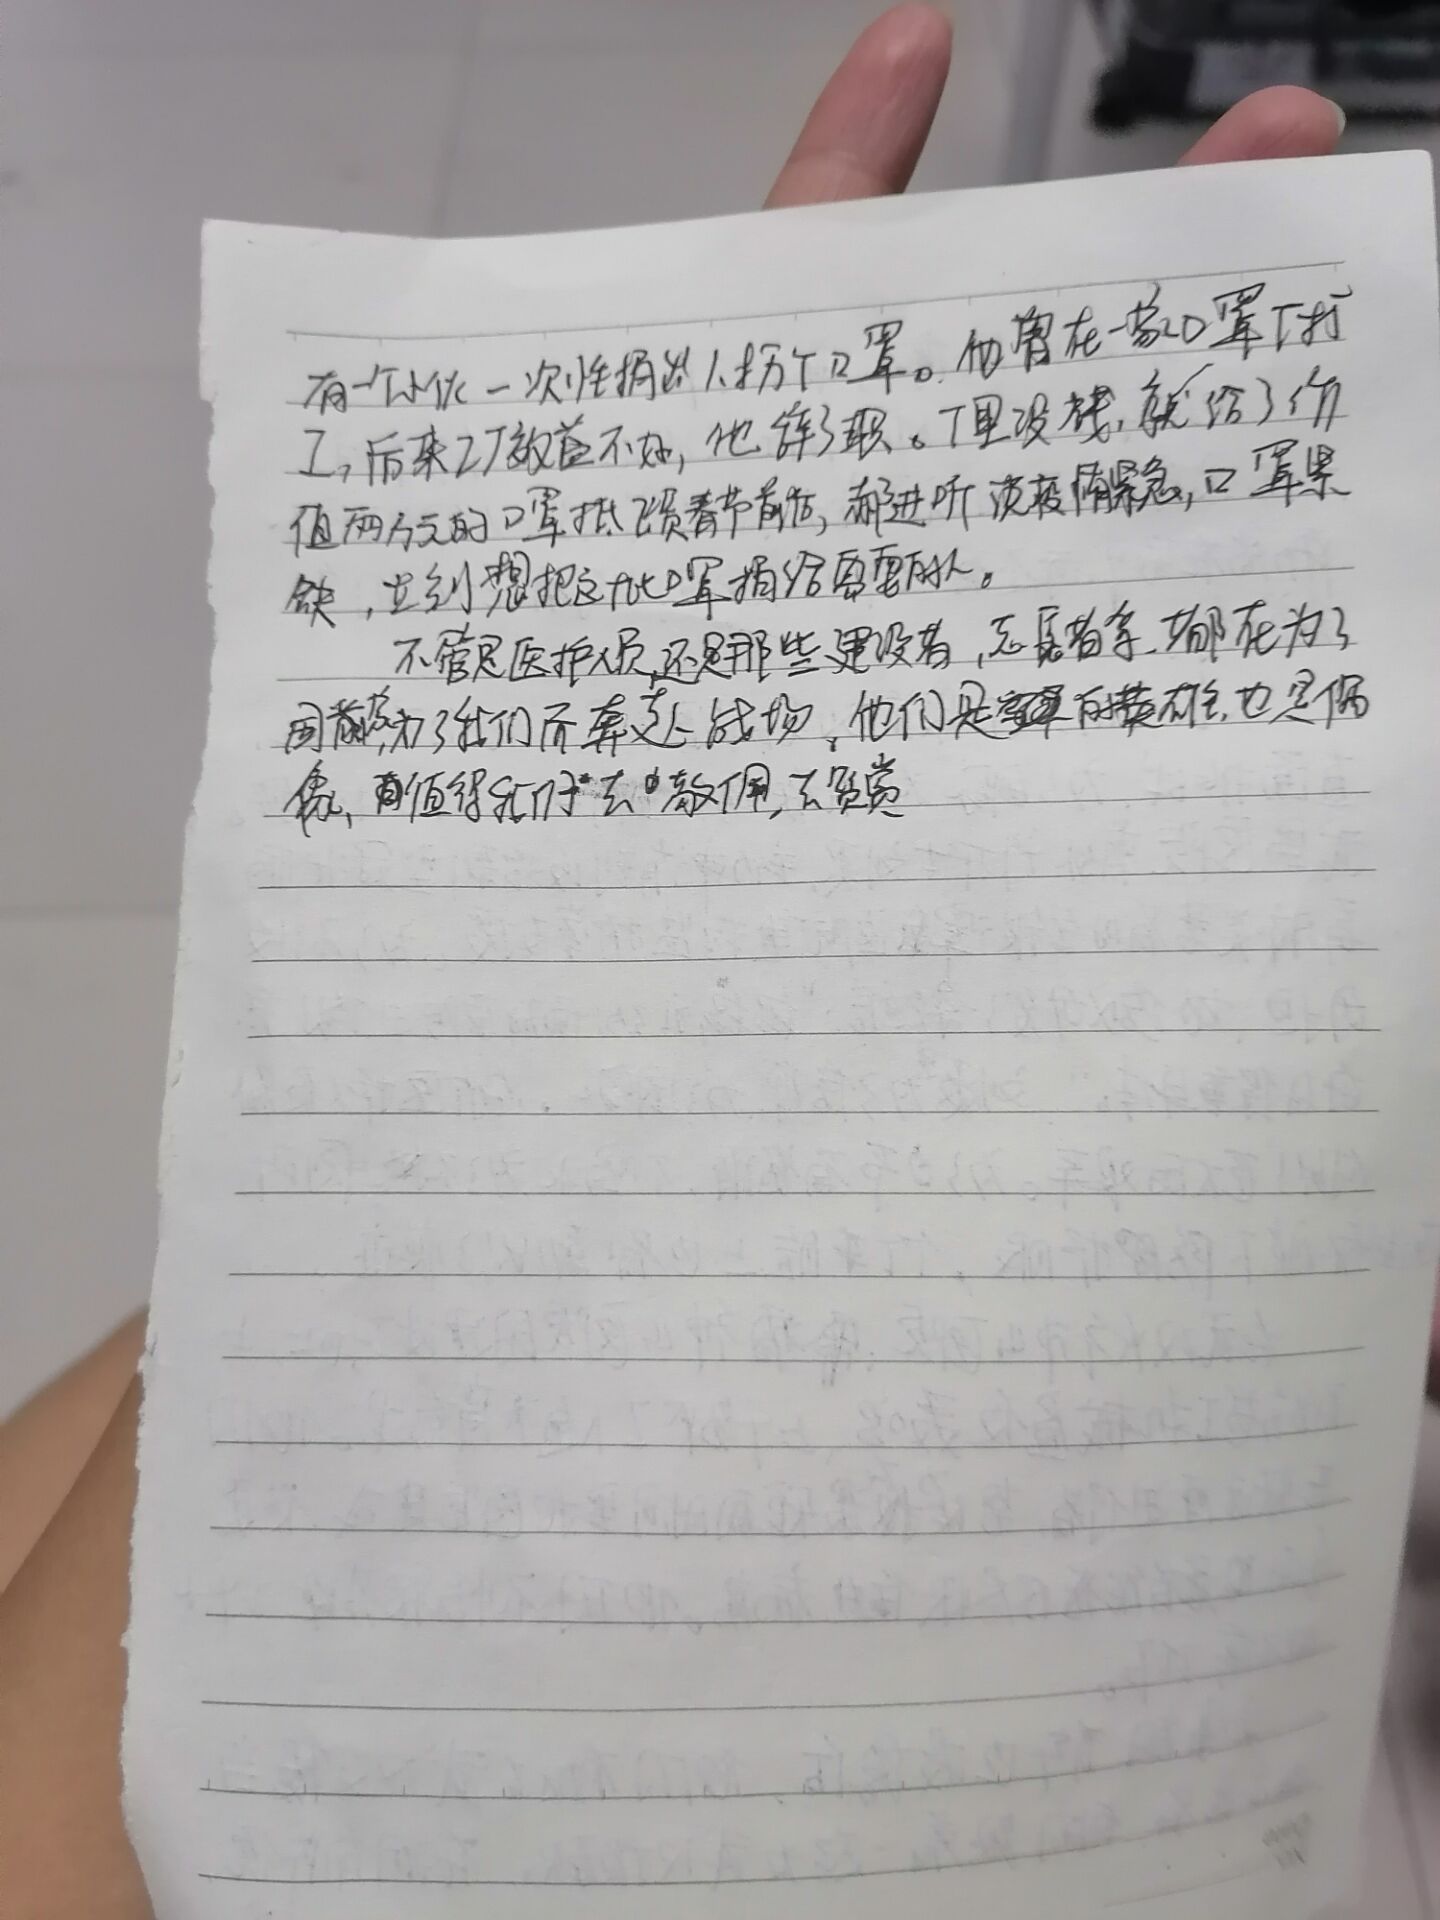 有一个小伙一次性捐出八拐个口罩。他曾在一家口罩厂打
工,后来工厂效益不好,他辞了职。厂里没钱,就给了价
值两万元的口罩抵工资春节前后,郝进听说疫情紧急,口罩紧
缺,立刻想把这批口罩捐给需要的人。
不管是医护人员,还是那些建设者,志愿者等.都在为了
国家,为了我们而奔赴战场,他们是军的英雄,也是偶
像,值得我们去敬佩,去赞赏